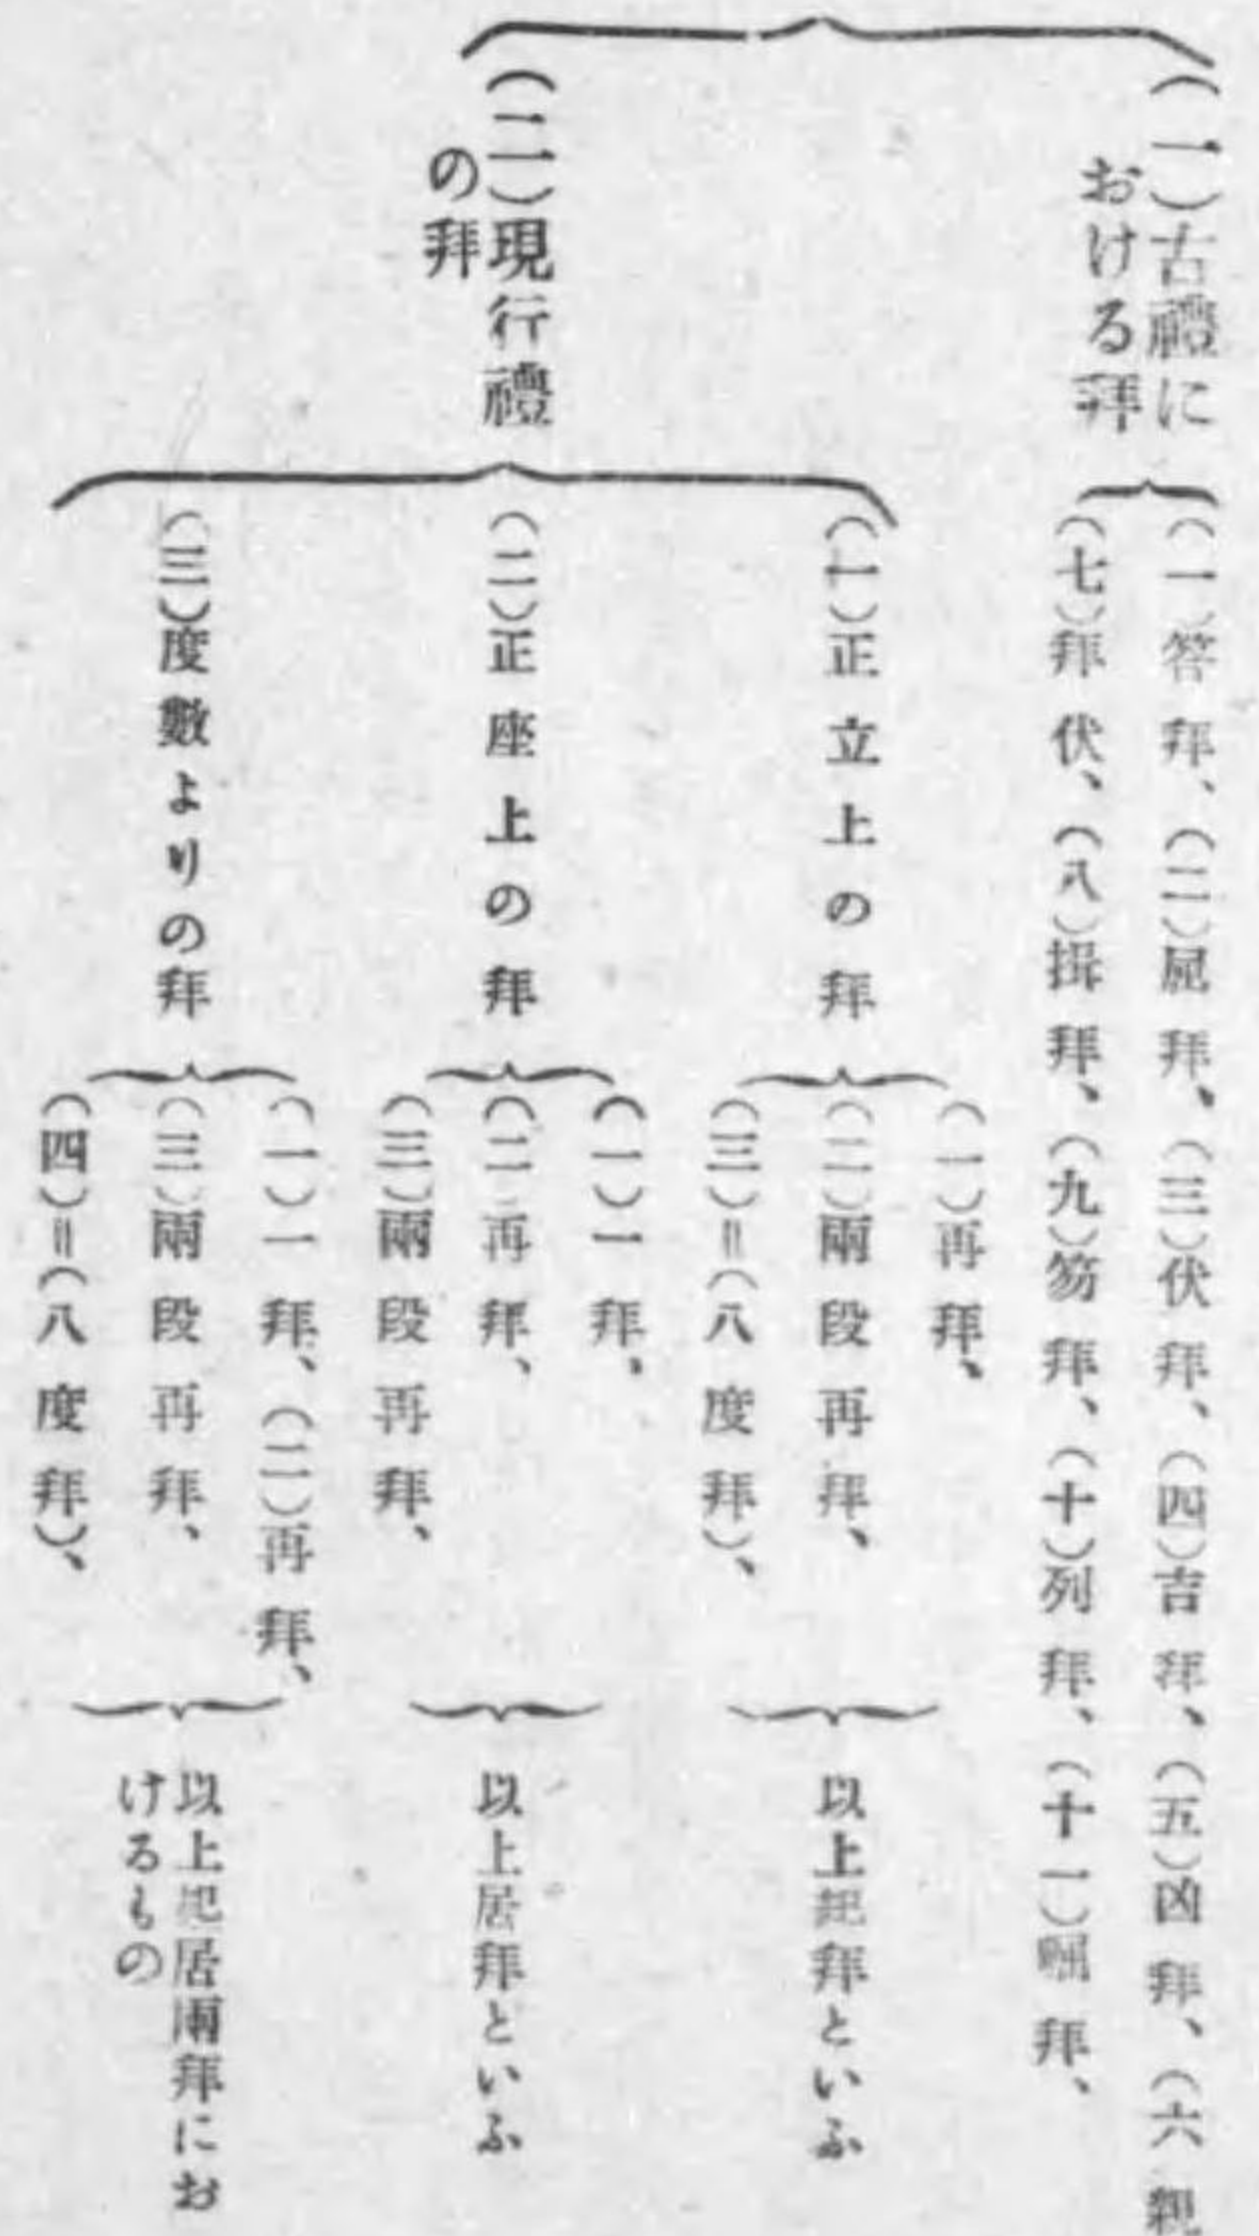 (一)古禮に
おける拜
(一)答拜、(二)屈拜、(三)伏拜、(四)吉拜、(五)凶拜、(六
(七)拜伏、(八)揖拜、(九)笏拜、(十)列拜、(十一)拜、
(二)現行禮
の拜
(一)正立上の拜
(一)再拜、
(二)兩段再拜、
(三)〃(八度拜)、
以上起拜といふ
(二)正座上の拜
(一)一拜、
(二)再拜、
(三)兩段再拜、
以上居拜といふ
(三)度數よりの拜
(一)一拜、(二)再拜、
(三)兩段再拜、
(四)〃(八度拜)、
以上起居兩拜にお
けるもの